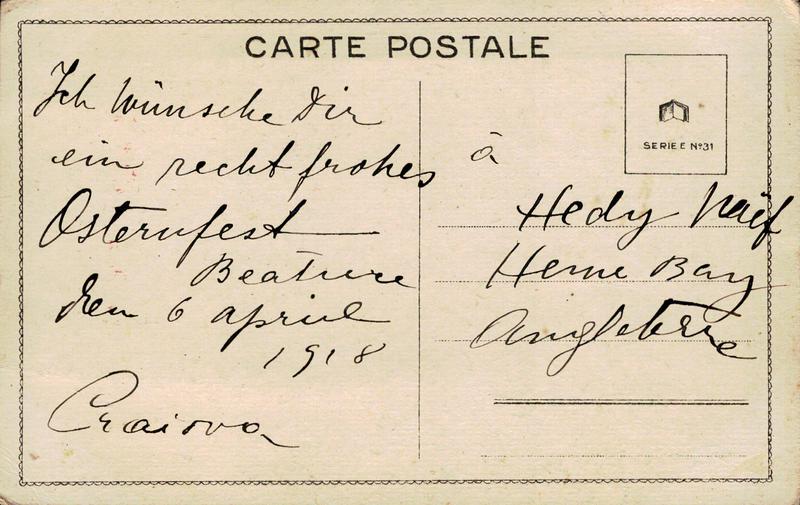 CARTE POSTALE
Ich wünsche Dir
ein recht frohes
Osternfest
Beatrice
den 6 april
1918
Craiova
SERIE E Nº 31
à
Hedy Naef
Herne Bay
Angleterre